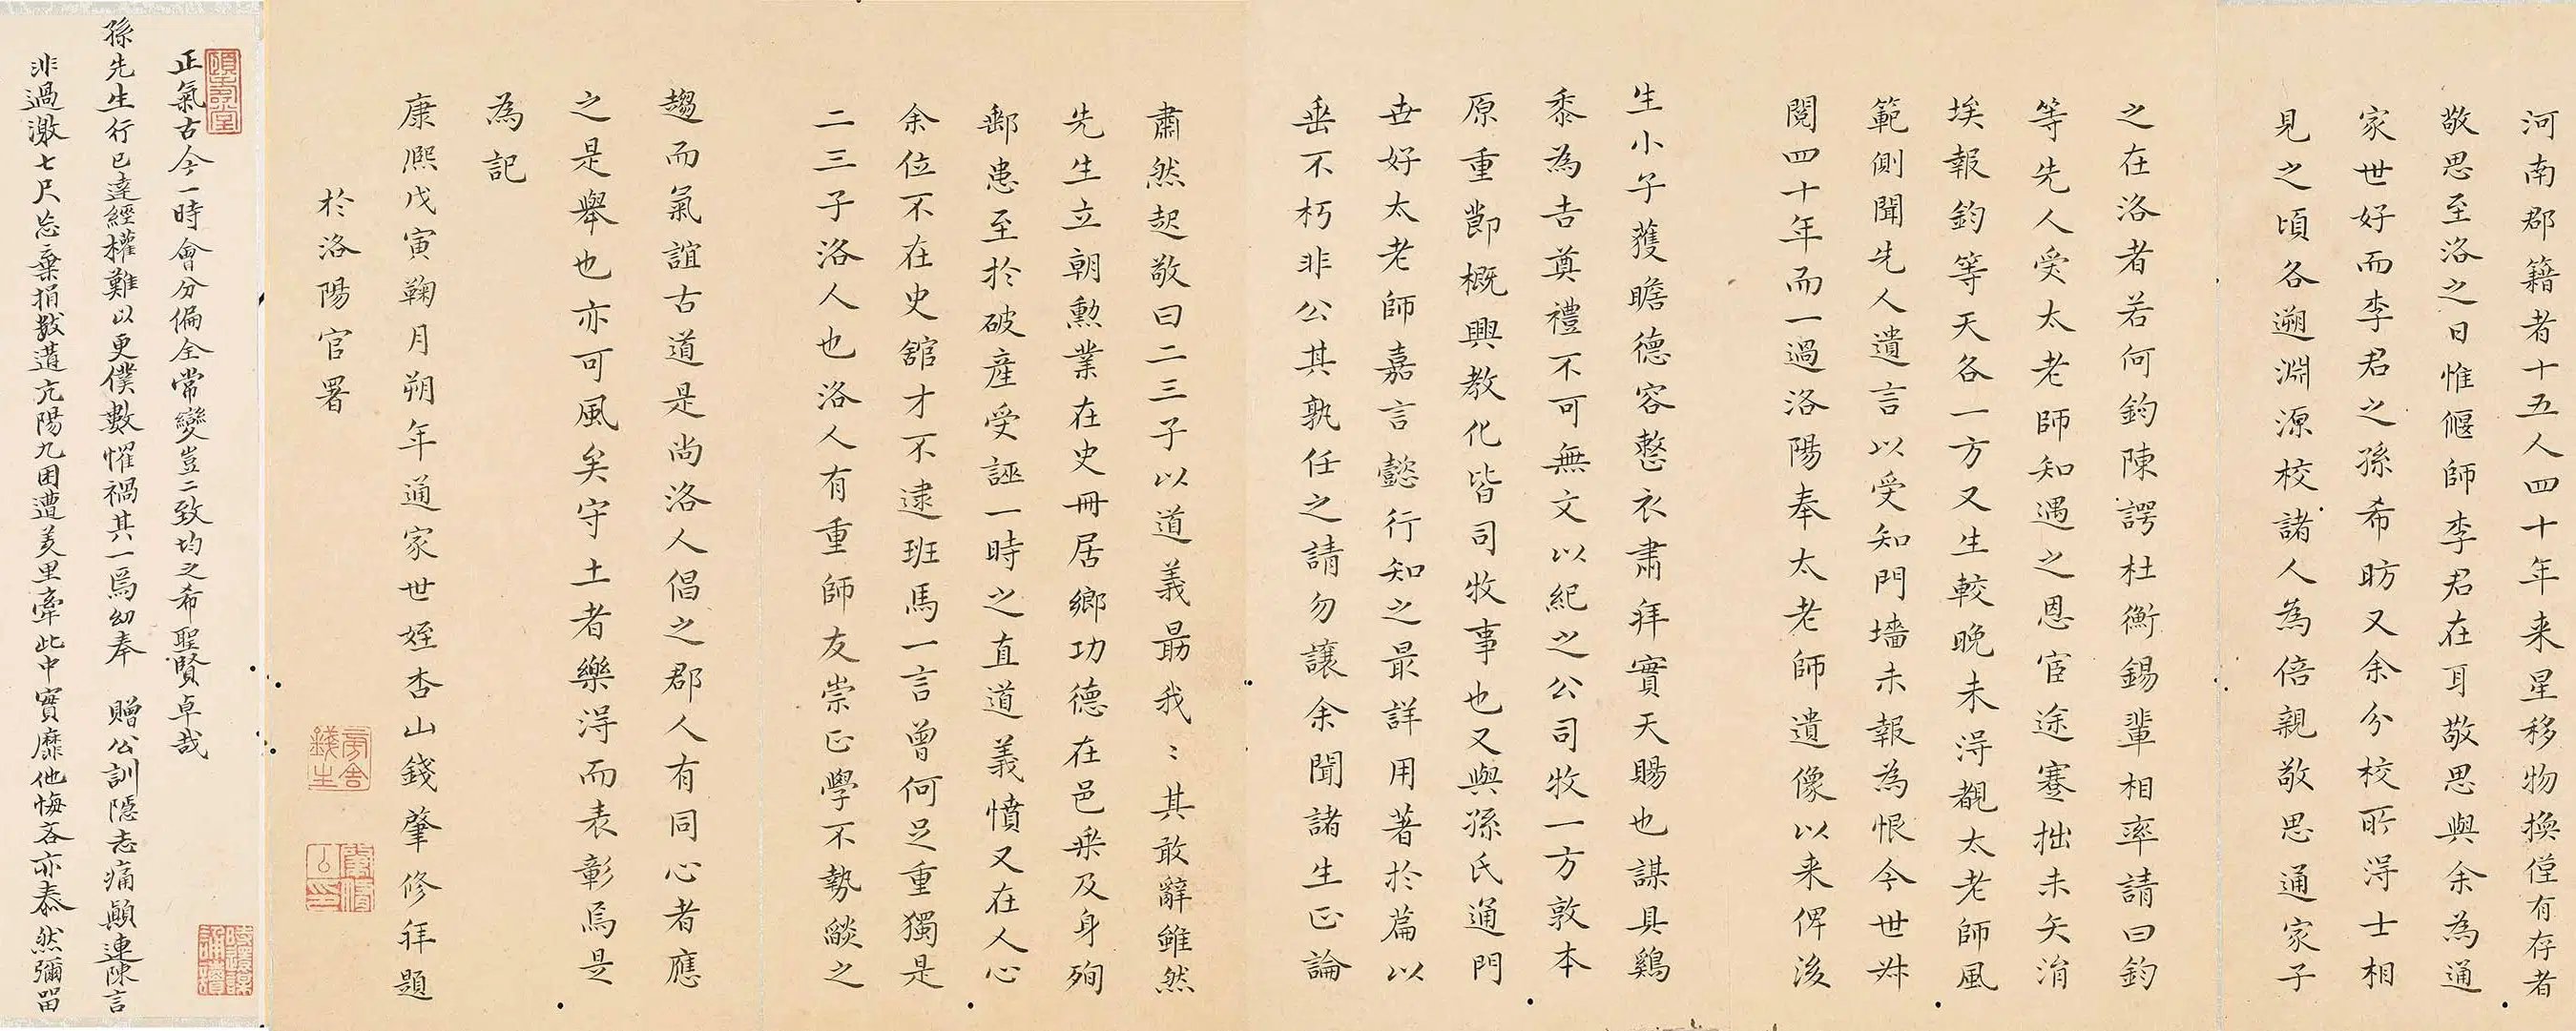 河南郡籍者十五人四十年来星移物換僅有存者
敬思至洛之日惟偃師李君在耳敬思與余為通
家世好而李君之孫希昉又余分校所淂士相
見之頃各遡淵源校諸人為倍親敬思通家子
之在洛者若何鈞陳諤杜衡錫輩相率請曰鈞
等先人受太老師知遇之恩宦途蹇拙未矢涓
埃報鈞等天各一方又生較晚未淂覩太老師風
範側聞先人遺言以受知門墻未報為恨今世姪
閱四十年而一過洛陽奉太老師遺像以来俾後
生小子獲瞻德容整衣肅拜實天賜也謀具鷄
黍為吉奠禮不可無文以紀之公司牧一方敦本
原重節概興教化皆司牧事也又與孫氏通門
世好太老師嘉言懿行知之最詳用著於篇以
垂不朽非公其孰任之請勿讓余聞諸生正論
肅然起敬曰二三子以道義勗我〻其敢辭雖然
先生立朝勲業在史冊居鄉功德在邑乗及身殉
鄴患至於破産受誣一時之直道義憤又在人心
余位不在史舘才不逮班馬一言曾何足重獨是
二三子洛人也洛人有重師友崇正學不勢燄之
趨而氣誼古道是尚洛人倡之郡人有同心者應
之是舉也亦可風矣守土者樂淂而表彰焉是
為記
康熙戊寅鞠月朔年通家世姪杏山錢肇修拜題
於洛陽官署
正氣古今一時會分偏全常變豈二致均之希聖賢卓哉
孫先生行已達經權難以更僕數懼禍其一焉幼奉 贈公訓隱志痛顛連陳言
非過激七尺忘棄捐數遘亢陽九困遭羑里牽此中實靡他悔吝亦泰然彌留